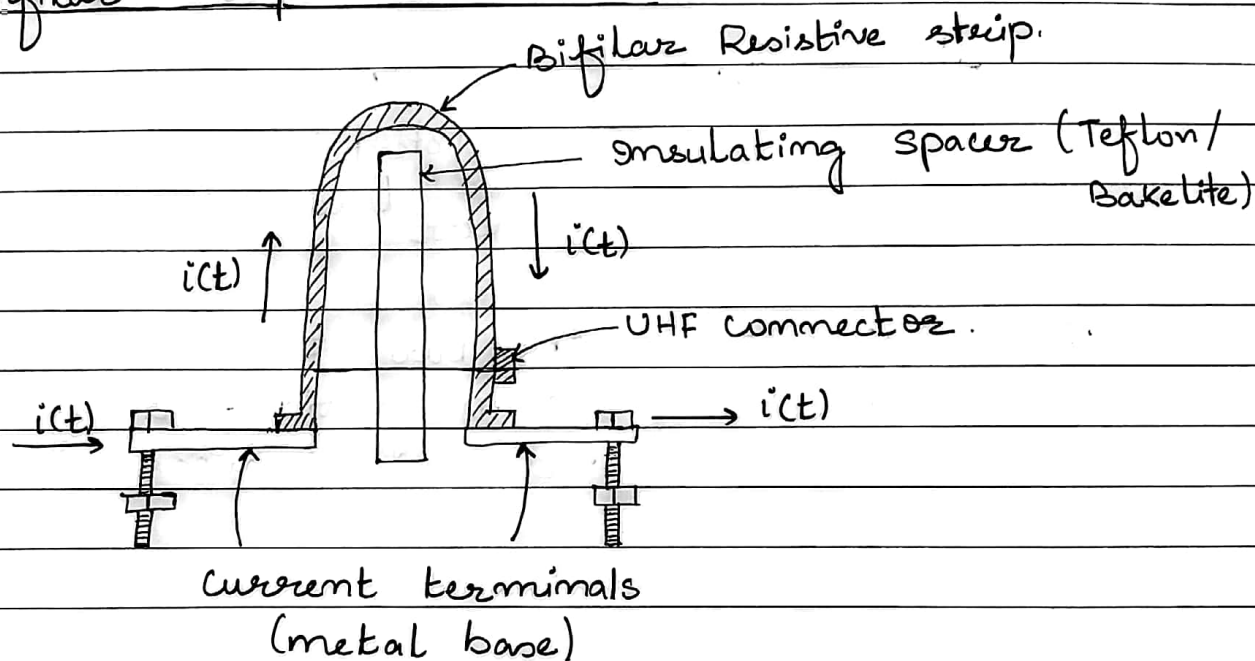 Bifilar Resistive strip.
Insulating spacer (Teflon/
Bakelite)
i(t)
i(t)
UHF connector.
i(t)
i(t)
Current terminals
(metal base)